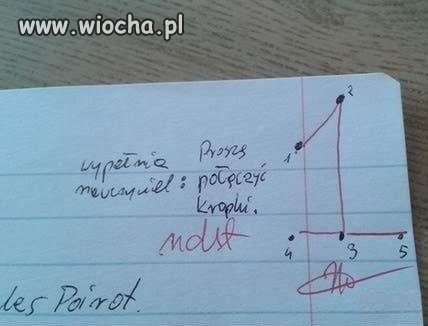 www.wiocha.pl
wypełnia
nauczyciel:
Proszę
połączyć
kropki.
ndst
1
2
4
3
5
les Poirot.